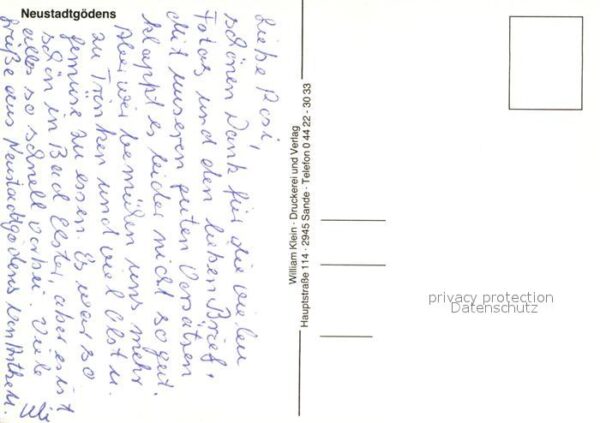 Neustadtgödens
Liebe Rosi,
schönen Dank für die vielen
Fotos und den lieben Brief.
Mit unseren guten Vorsätzen
klappt es leider nicht so gut.
Aber wir bemühen uns mehr
zu Trinken und viel Obst u.
Gemüse zu essen. Es war so
schön in Bad Elster, aber es ist
alles so schnell vorbei. Viele
Grüße aus Neustadtgödens von
William Klein · Druckerei und Verlag
Hauptstraße 114 · 2945 Sande · Telefon 0 44 22 - 30 33
privacy protection
Datenschutz